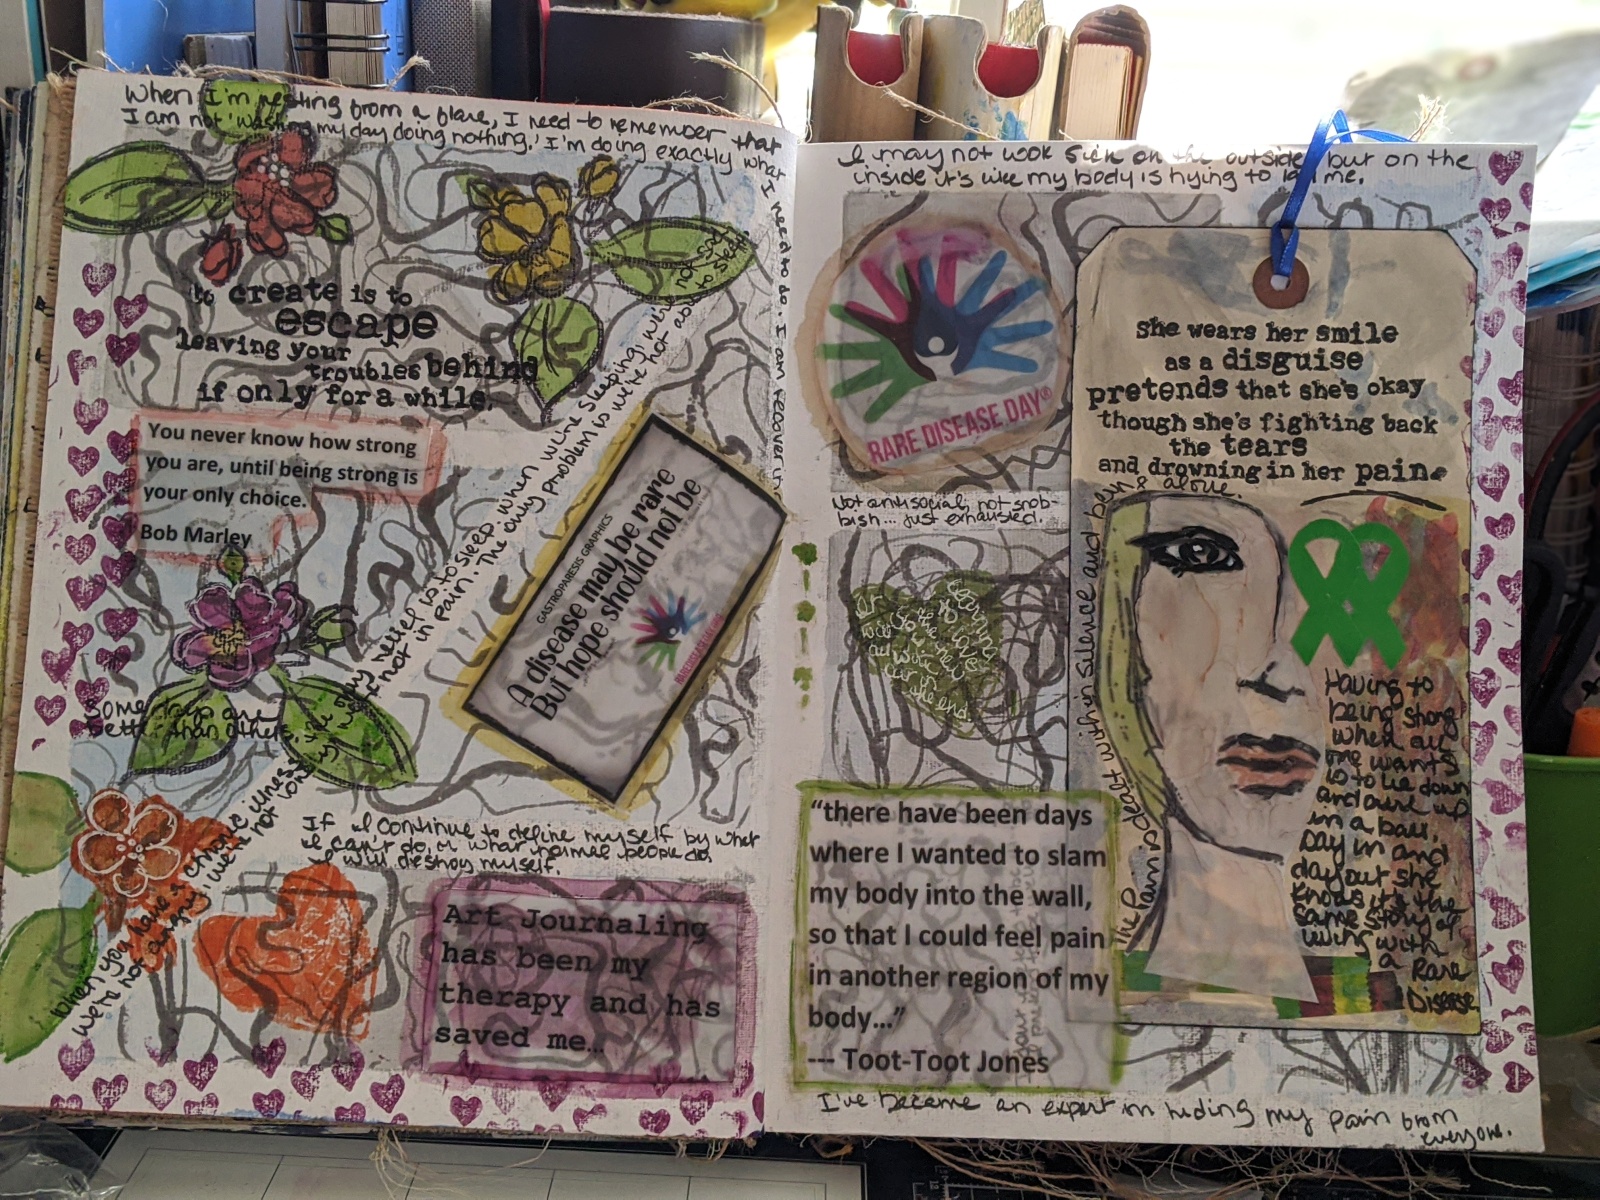 When I'm resting from a flare, I need to remember that
I am not 'wasting my day doing nothing.' I'm doing exactly what
I need to do. I am recovering
to create is to
escape
leaving your
troubles behind
if only for a while.
You never know how strong
you are, until being strong is
your only choice.
Bob Marley
When you have a chronic illness
we're not
angry, we're not
relief is to sleep. When we're sleeping, we're not sad,
not in pain. The only problem is we're not able to sleep!
GASTROPARESIS GRAPHICS
A disease may be rare
But hope should not be
RARE DISEASE DAY
Some days are
better than others.
If I continue to define myself by what
I can't do, or what normal people do,
I will destroy myself.
Art Journaling
has been my
therapy and has
saved me…
I may not look sick on the outside, but on the
inside it's like my body is trying to me.
RARE DISEASE DAY®
Not antisocial, not snob-
bish... just exhausted.
in the end.
"there have been days
where I wanted to slam
my body into the wall,
so that I could feel pain
in another region of my
body…"
--- Toot-Toot Jones
she wears her smile
as a disguise
pretends that she's okay
though she's fighting back
the tears
and drowning in her pain.
The pain is dealt with in silence and being alone.
Having to
being strong
when all
one wants
is to lie down
and curl up
in a ball.
Day in and
day out she
knows it's the
same story of
living with
a Rare
Disease
I've become an expert in hiding my pain from
everyone.